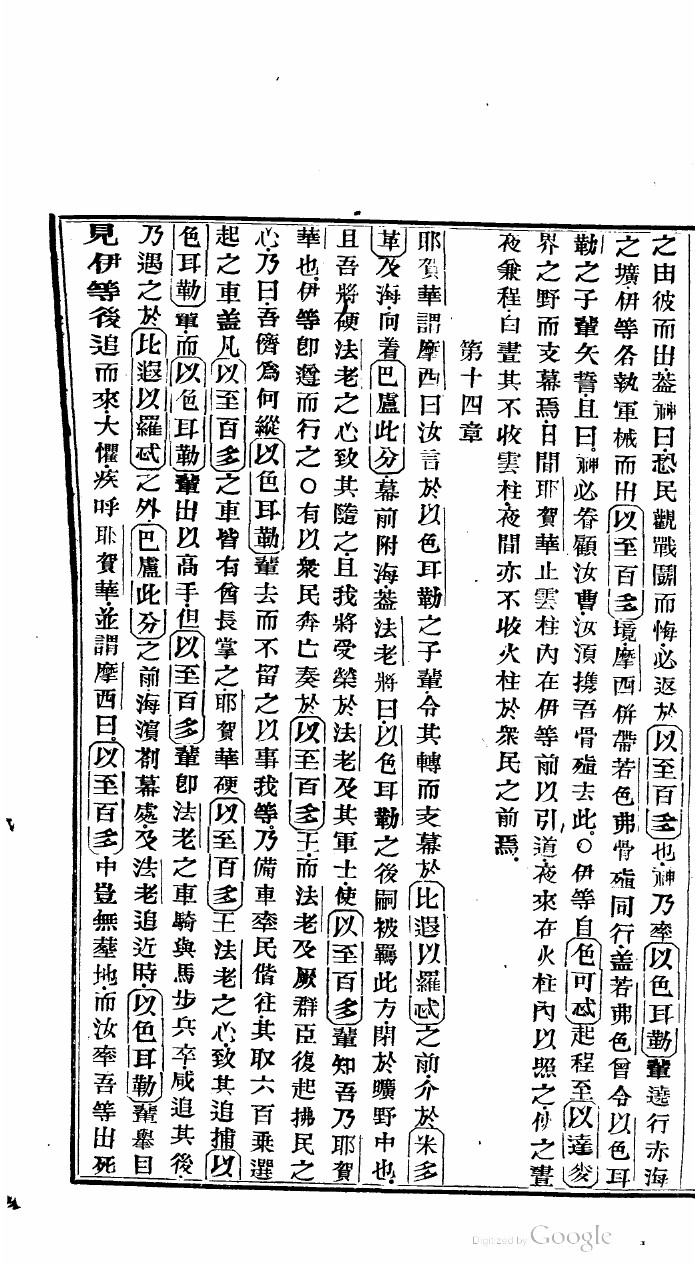 之由彼而出。葢神曰。恐民觀戰鬬而悔。必返於以至百多也。神乃率以色耳勒輩遶行赤海
之壙。伊等各執軍械而出以至百多境。摩西倂帶若色弗骨殖同行。盖若弗色曾令以色耳
勒之子輩矢誓。且曰。神必眷顧汝曹。汝湏攜吾骨殖去此。○伊等自色可忒起程。至以達麥
界之野而支幕焉。日間耶賀華止雲柱內在伊等前以引道。夜來在火柱內以照之。俾之晝
夜兼程。白晝其不收雲柱。夜間亦不收火柱於衆民之前焉。
第十四章
耶賀華謂摩西曰。汝言於以色耳勒之子輩。令其轉而支幕於比遐以羅忒之前。介於米多
革及海。向着巴盧此分。幕前附海。葢法老將曰。以色耳勒之後嗣被羈此方。閉於曠野中也。
且吾將硬法老之心。致其隨之。且我將受榮於法老及其軍士。使以至百多輩知吾乃耶賀
華也。伊等卽遵而行之。○有以衆民奔亡奏於以至百多王。而法老及厥群臣復起拂民之
心。乃曰。吾儕爲何縱以色耳勒輩去而不留之以事我等。乃備車率民偕往。其取六百乘選
起之車。盖凡以至百多之車皆有酋長掌之。耶賀華硬以至百多王法老之心。致其追捕以
色耳勒軍。而以色耳勒輩出以高手。但以至百多輩卽法老之車騎與馬步兵卒。咸追其後。
乃遇之於比遐以羅忒之外。巴盧此分之前海濱劄幕處。及法老追近時。以色耳勒輩舉目
見伊等後追而來。大懼。疾呼耶賀華。並謂摩西曰。以至百多中豈無墓地。而汝率吾等出死
Digitized by Google